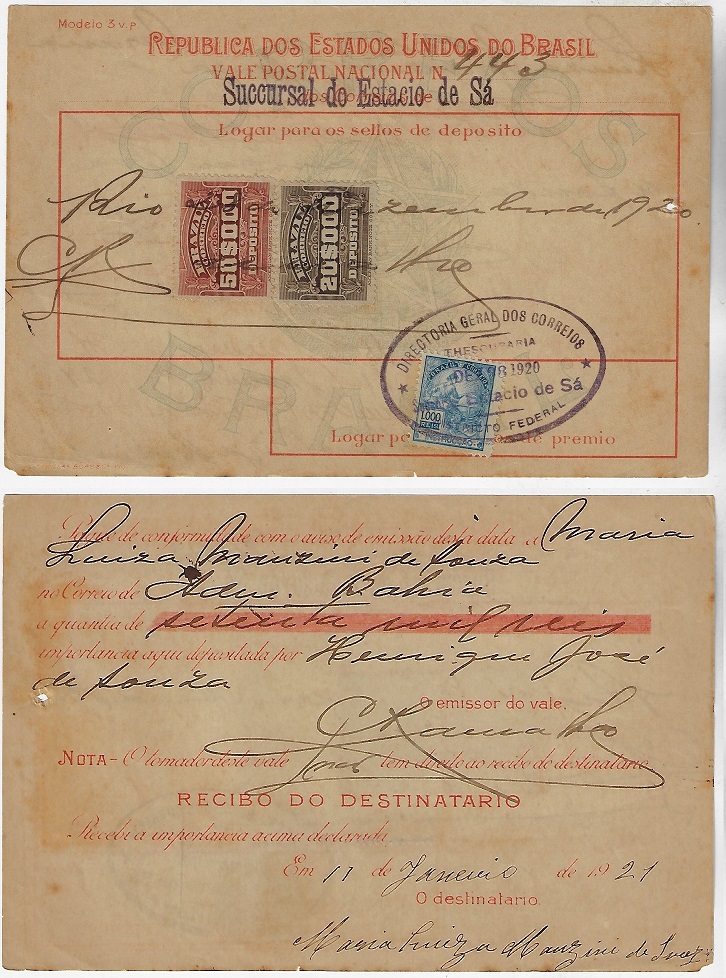 Modelo 3 v.p
REPUBLICA DOS ESTADOS UNIDOS DO BRASIL
VALE POSTAL NACIONAL N. 443
Succursal do Estacio de Sá
Logar para os sellos de deposito
CORREIOS
BRAZIL CORREIO 50$000 DEPOSITO
BRAZIL CORREIO 20$000 DEPOSITO
Rio de 1920
DIRECTORIA GERAL DOS CORREIOS
THESOURARIA
DEZ 1920
Estacio de Sá
DISTRICTO FEDERAL
1.000
REIS
BRA
Logar premio
Pague de conformidade com o aviso de emissão desta data a Maria
Luiza Manzini de Souza
no Correio de Adm. Bahia
a quantia de setenta mil reis
importancia aqui depositada por Henrique José
de Souza
O emissor do vale,
NOTA - O tomador deste vale tem direito ao recibo do destinatario
RECIBO DO DESTINATARIO
Recebi a importancia acima declarada.
Em 17 de Janeiro de 1921
O destinatario.
Maria Luiza Manzini de Souza